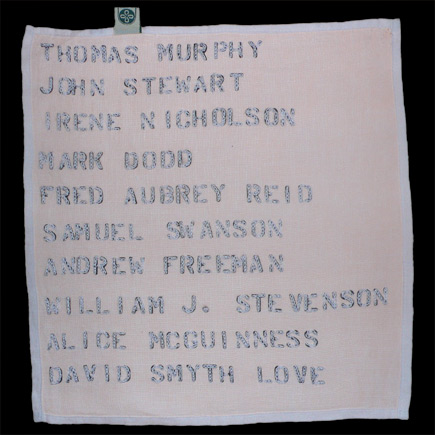 THOMAS MURPHY
JOHN STEWART
IRENE NICHOLSON
MARK DODD
FRED AUBREY REID
SAMUEL SWANSON
ANDREW FREEMAN
WILLIAM J. STEVENSON
ALICE MCGUINNESS
DAVID SMYTH LOVE